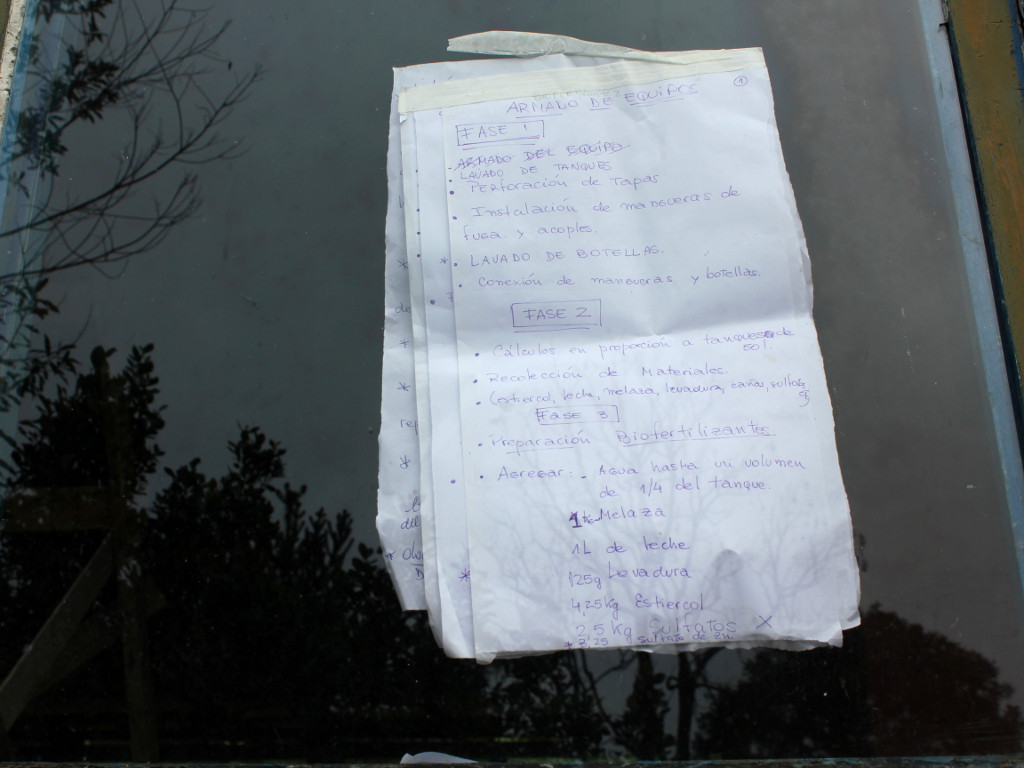 1
ARMADO DE EQUIPOS
FASE 1
ARMADO DEL EQUIPO
LAVADO DE TANQUES
• Perforación de Tapas
• Instalación de mangueras de
fuga y acoples.
* • LAVADO DE BOTELLAS.
• Conexión de mangueras y botellas.
FASE 2
• Cálculos en proporción a tanques de
50 l.
• Recolección de Materiales.
• (estiercol, leche, melaza, levadura,
FASE 3
• Preparación Biofertilizantes
• Agregar: - Agua hasta un volumen
de 1/4 del tanque.
Melaza
1L de leche
125g Levadura
4,25kg Estiercol
2,5 Kg Sulfatos X